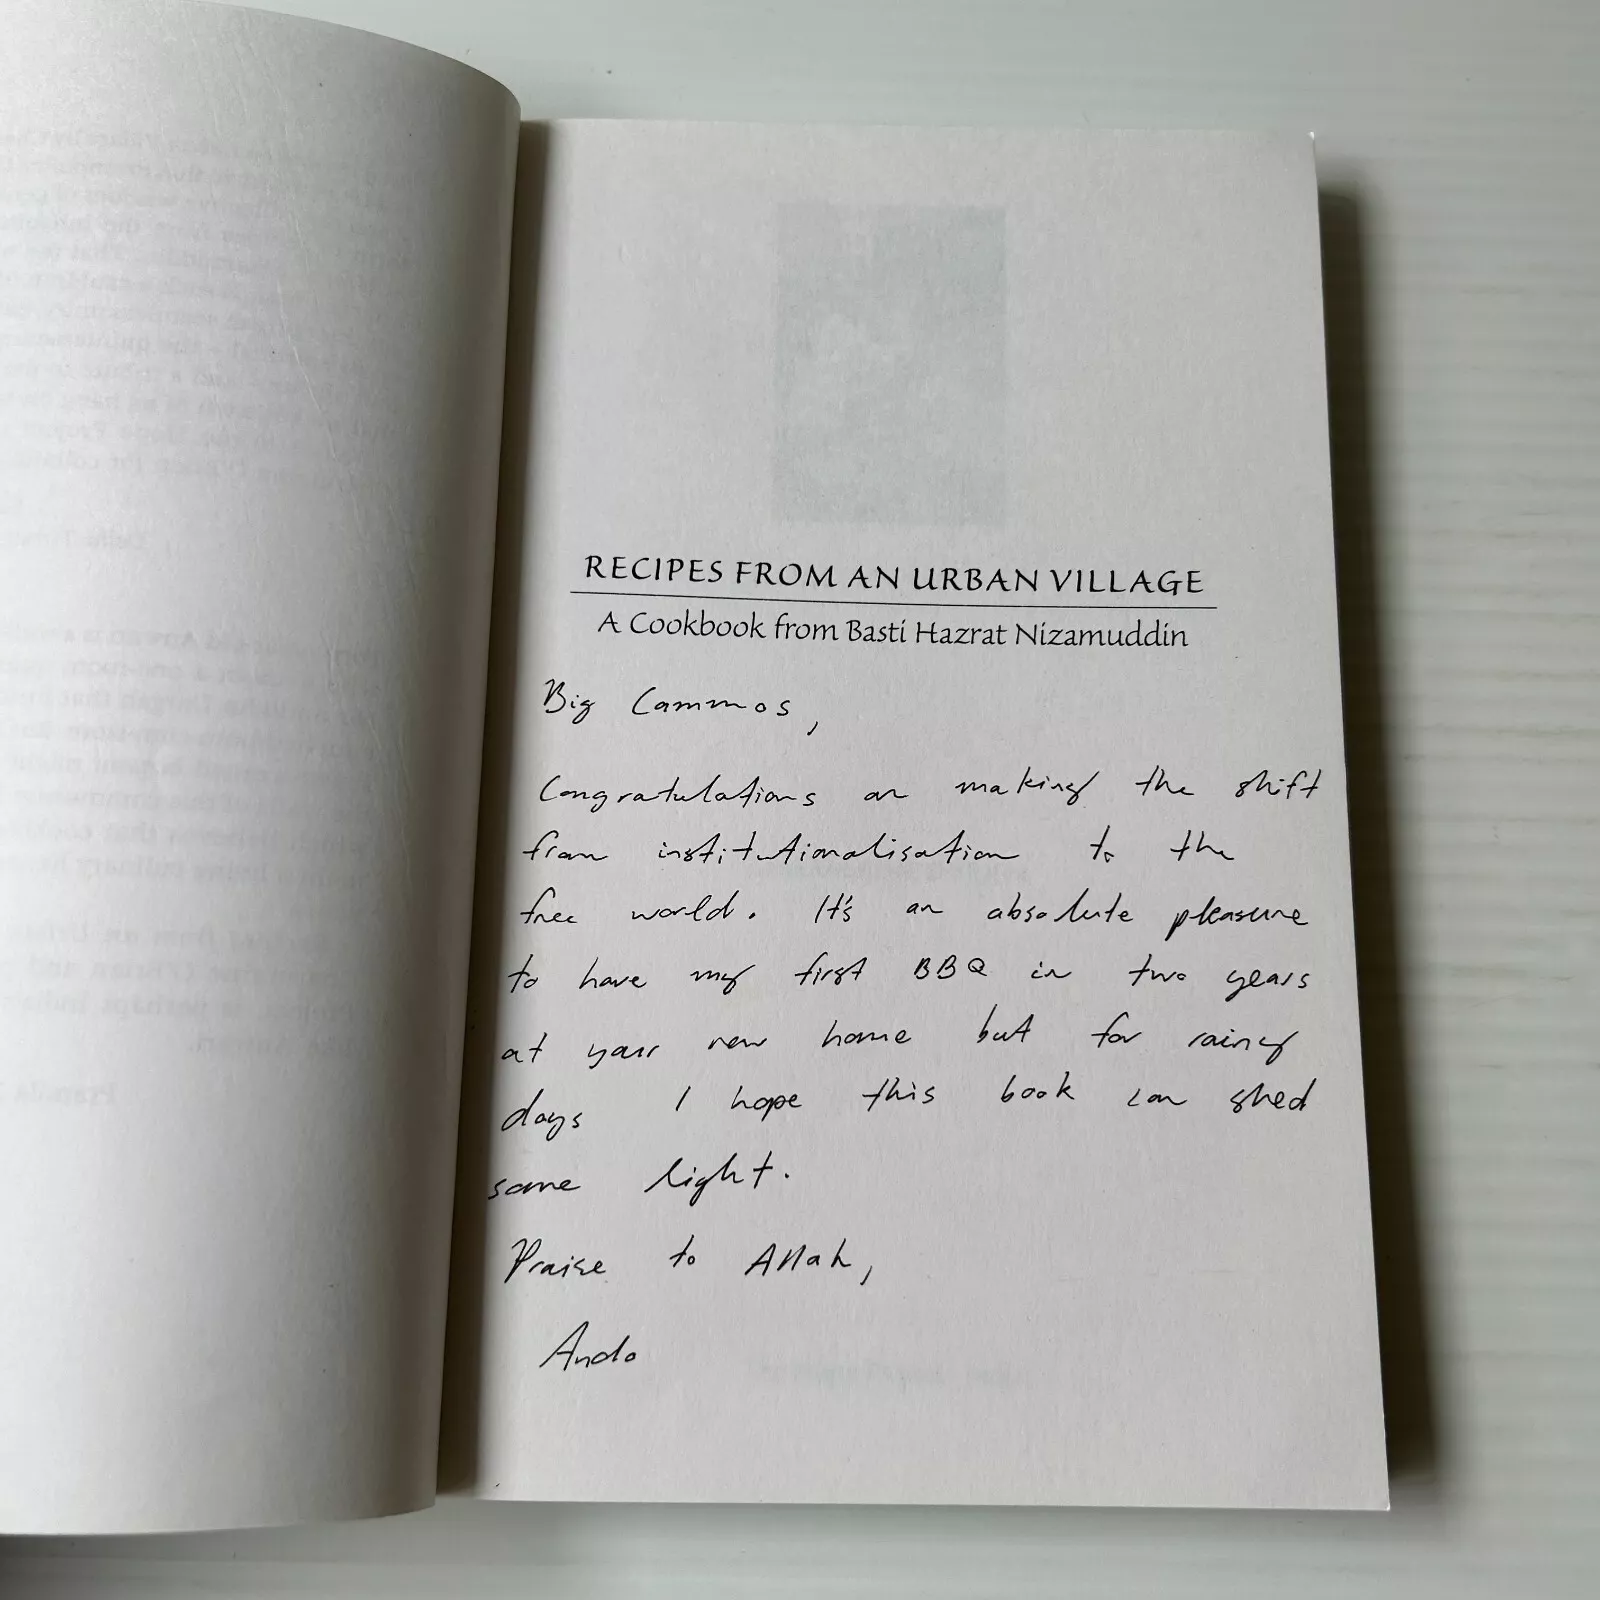 RECIPES FROM AN URBAN VILLAGE
A Cookbook from Basti Hazrat Nizamuddin
Big Cammos,
Congratulations on making the shift
from institutionalisation to the
free world. It's an absolute pleasure
to have my first BBQ in two years
at your new home but for rainy
days I hope this book can shed
some light.
Praise to Allah,
Ando